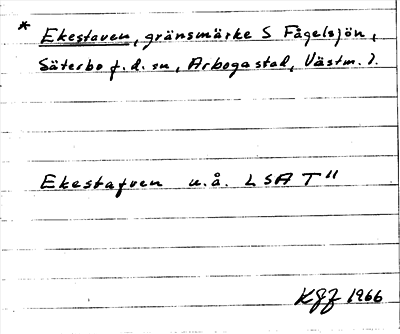 * Ekestaven, gränsmärke S Fågelsjön,
Säterbo f.d. sn, Arboga stad, Västm. l.
Ekestafven u.å. LSA T"
KGF 1966